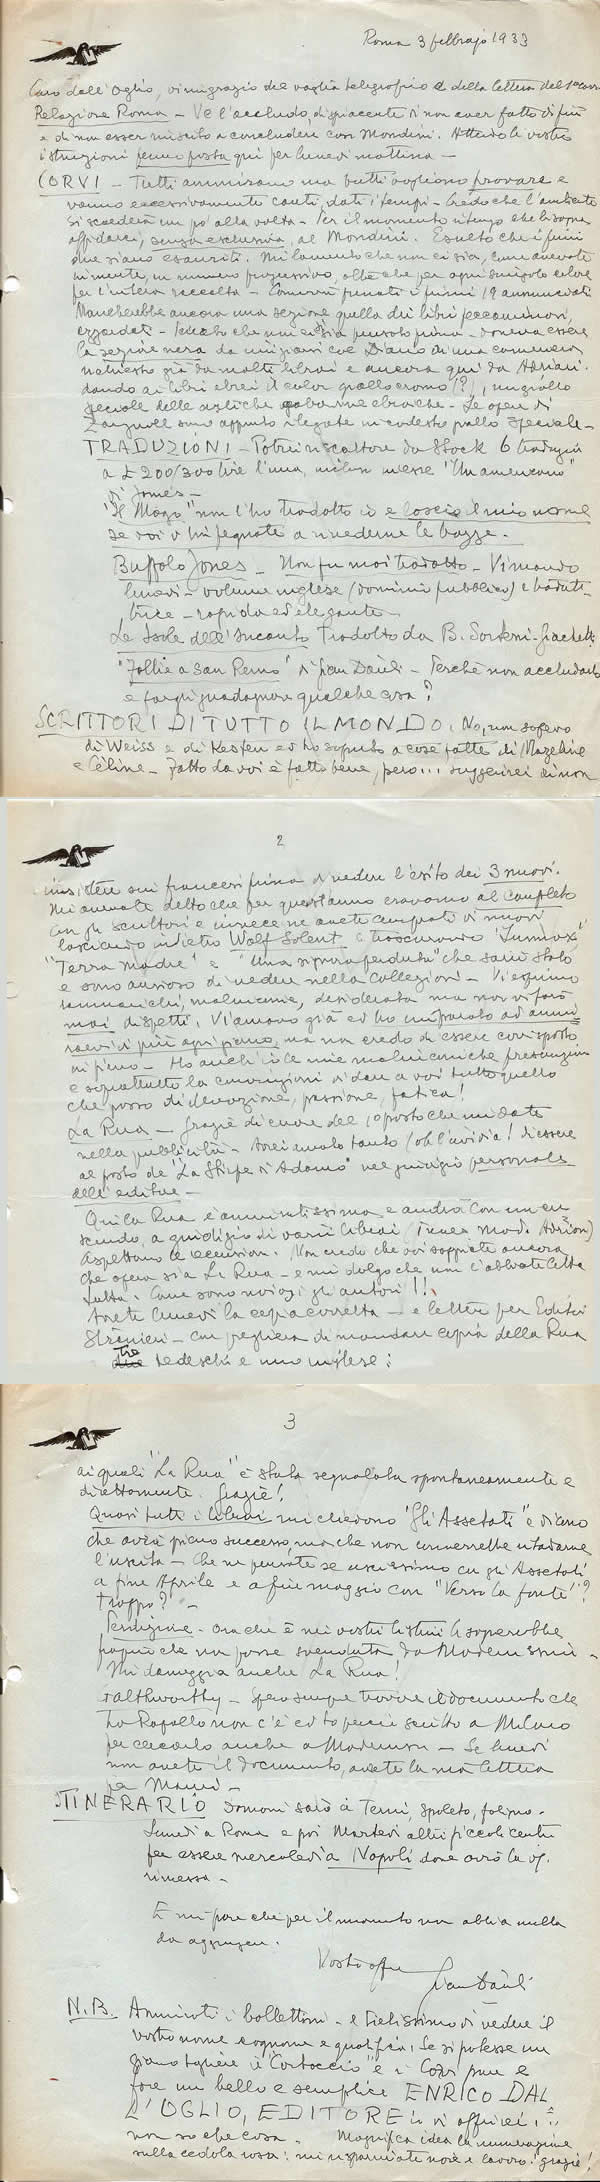 Roma 3 febbrajo 1933
Caro dall'Oglio, vi ringrazio del vaglia telegrafico e della lettera del 1° corr.
Relazione Roma – Ve l'accludo, dispiacente di non aver fatto di più
e di non esser riuscito a concludere con Mondini. Attendo le vostre
istruzioni fermo posta qui per lunedì mattina –
CORVI – Tutti ammirano ma tutti vogliono provare e
vanno eccessivamente cauti, dati i tempi – Credo che l'ambiente
si scalderà un po' alla volta – Per il momento ritengo che bisogna
affidarci, senza esclusiva, al Mondini. Esulto che i primi
due siano esauriti. Mi lamento che non ci sia, come avevate
in mente, un numero progressivo, oltre che per ogni singolo colore
per l'intera raccolta –
Mancherebbe ancora una sezione quella dei libri peccaminosi,
azzardati – Peccato che non ci si sia pensato prima – doveva essere
la sezione nera da iniziarsi col Diario di una cameriera
richiesto già da molti librai e ancora qui da Adriani.
dando ai libri ebrei il color giallo cromo (?), un giallo
speciale delle antiche gabbane ebraiche – Le opere di
Zangwill sono appunto rilegate in codesto giallo speciale –
TRADUZIONI – Potrei riscattare da Stock 6 traduzioni
a £ 200/300 lire l'una, incluso messe "Un americano"
di James –
"Il Mago" non l'ho tradotto io e lascio il mio nome
se voi v'impegnate a rivederne le bozze.
Buffalo Jones – Non fu mai tradotto – Vi mando
lunedì – volume inglese (dominio pubblico) e tradut-
trice – rapida ed elegante –
Le Isole dell'Incanto Tradotto da B.
"Follie a San Remo" di Gian Dàuli – Perchè non accluderlo
e fargli guadagnare qualche cosa?
SCRITTORI DI TUTTO IL MONDO. No, non sapevo
di Weiss e di Kesten ed ho saputo a cose fatte di Mazeline
e Céline – Fatto da voi è fatto bene, però... suggerirei di non
2
insistere sui francesi prima di vedere l'esito dei 3 nuovi.
Mi avevate detto che per quest'anno eravamo al completo
con gli scrittori e invece ne avete comprati di nuovi
lasciando indietro Wolf Solent e trascurando
"Terra madre" e "Una signora perduta" che sarei stato
e sono ansioso di vedere nella Collezione – Vi esprimo
rammarichi, malinconie, desiderata ma non vi farò
mai dispetti. Vi amavo già ed ho imparato ad ammi-
rarvi di più ogni giorno, ma non credo di essere corrisposto
in pieno – Ho anch'io le mie malinconiche presunzioni
e soprattutto la convinzione di dare a voi tutto quello
che posso di devozione, passione, fatica!
La Rua – grazie di cuore del posto che mi date
nella pubblicità – Avrei amato tanto (oh l'invidia!) di essere
al posto de "La Stirpe di Adamo" nel giudizio personale
dell'editore –
Qui la Rua è ammiratissima e andrà con un cre-
scendo, a giudizio di varii librai
Aspettano le recensioni. Non credo che voi sappiate ancora
che opera sia La Rua – e mi dolgo che non l'abbiate letta
tutta. Come sono noiosi gli autori!!
Avrete lunedì la copia corretta – e lettere per Editori
Stranieri – con preghiera di mandare copia della Rua
Tre
tedeschi e uno inglese:
3
ai quali "La Rua" è stata segnalata spontaneamente e
direttamente. Grazie!
Quasi tutti i librai mi chiedono "Gli Assetati" e dicono
che avrà pieno successo, ma che non converrebbe ritardarne
l'uscita – Che ne pensate se uscissimo cu gli Assetati
a fine Aprile e a fine maggio con "Verso la fonte"?
troppo? –
Perdizione – Ora che è nei vostri listini
che non fosse svenduta da Modernissima –
Mi danneggia anche La Rua!
Galthworthy – Spero sempre trovare il documento che
a Rapallo non c'è ed ho perciò scritto a Milano
per cercarlo anche a Modernissima – Se lunedì
non avete il documento, avrete la mia lettera
per Mauri –
ITINERARIO Domani sarò a Terni, Spoleto, Foligno –
Lunedì a Roma e poi Martedì altri piccoli centri
per essere mercoledì a Napoli dove avrò la vs.
rimessa –
E mi pare che per il momento non abbia nulla
da aggiungere.
Vostro aff.
Gian Dàuli
N.B. Ammirati i bollettini – e lietissimo di vedere il
vostro nome cognome e qualifica. Se si potesse un
giorno togliere il "Corbaccio" e i Corvi pure e
fare un bello e semplice ENRICO DAL
L'OGLIO, EDITORE io vi offrirei...
non so che cosa. Magnifica idea la numerazione
sulla cedola rosa: mi risparmiate noie e lavoro! grazie!